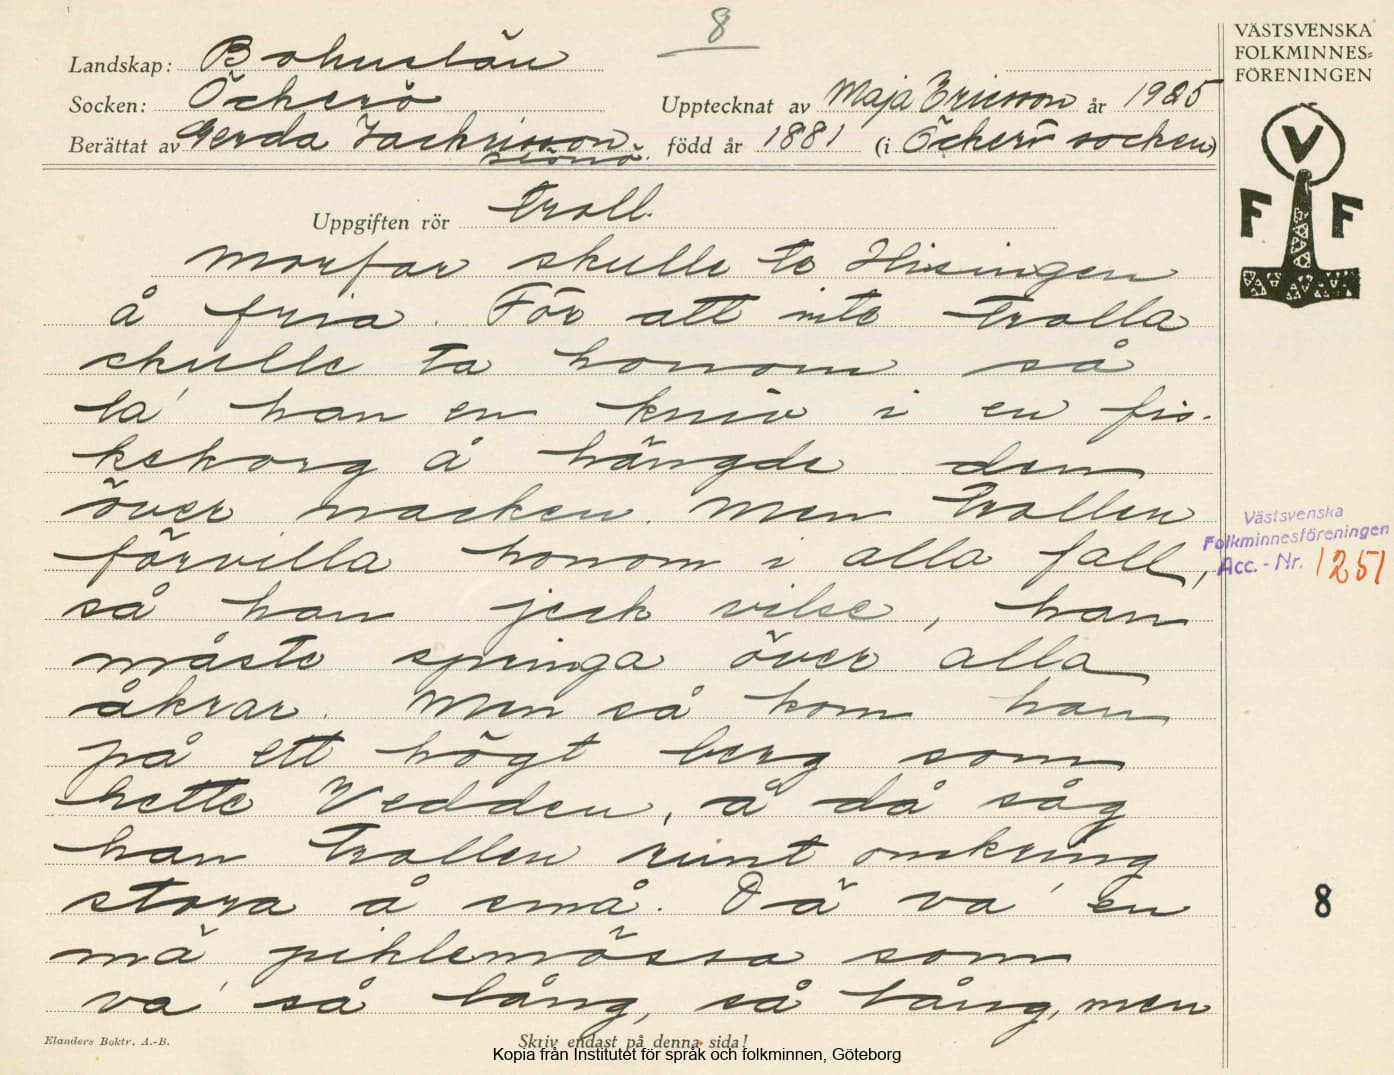 8
Landskap: Bohuslän
Socken: Öckerö
Upptecknat av Maja Ericsson år 1925
Berättat av Gerda Zackrisson
född år 1881 (i Öckerö socken)
Uppgiften rör Troll.
Morfar skulle te Hisingen
å fria. För att inte trolla
skulle ta honom så
la' han en kniv i en fis-
kekorg å hängde den
över nacken. Men trollen
förvilla honom i alla fall,
så han jeck vilse, han
måste springa över alla
åkrar. Men så kom han
på ett högt berg som
hette Vedden, å då såg
han trollen runt omkring
stora å små. Dä va' en
mä piklemössa som
va' så lång, så lång, men
Elanders Boktr. A.-B.
Skriv endast på denna sida!
Kopia från Institutet för språk och folkminnen, Göteborg
VÄSTSVENSKA
FOLKMINNES-
FÖRENINGEN
V
F F
Västsvenska
Folkminnesföreningen
Acc. - Nr. 1251
8